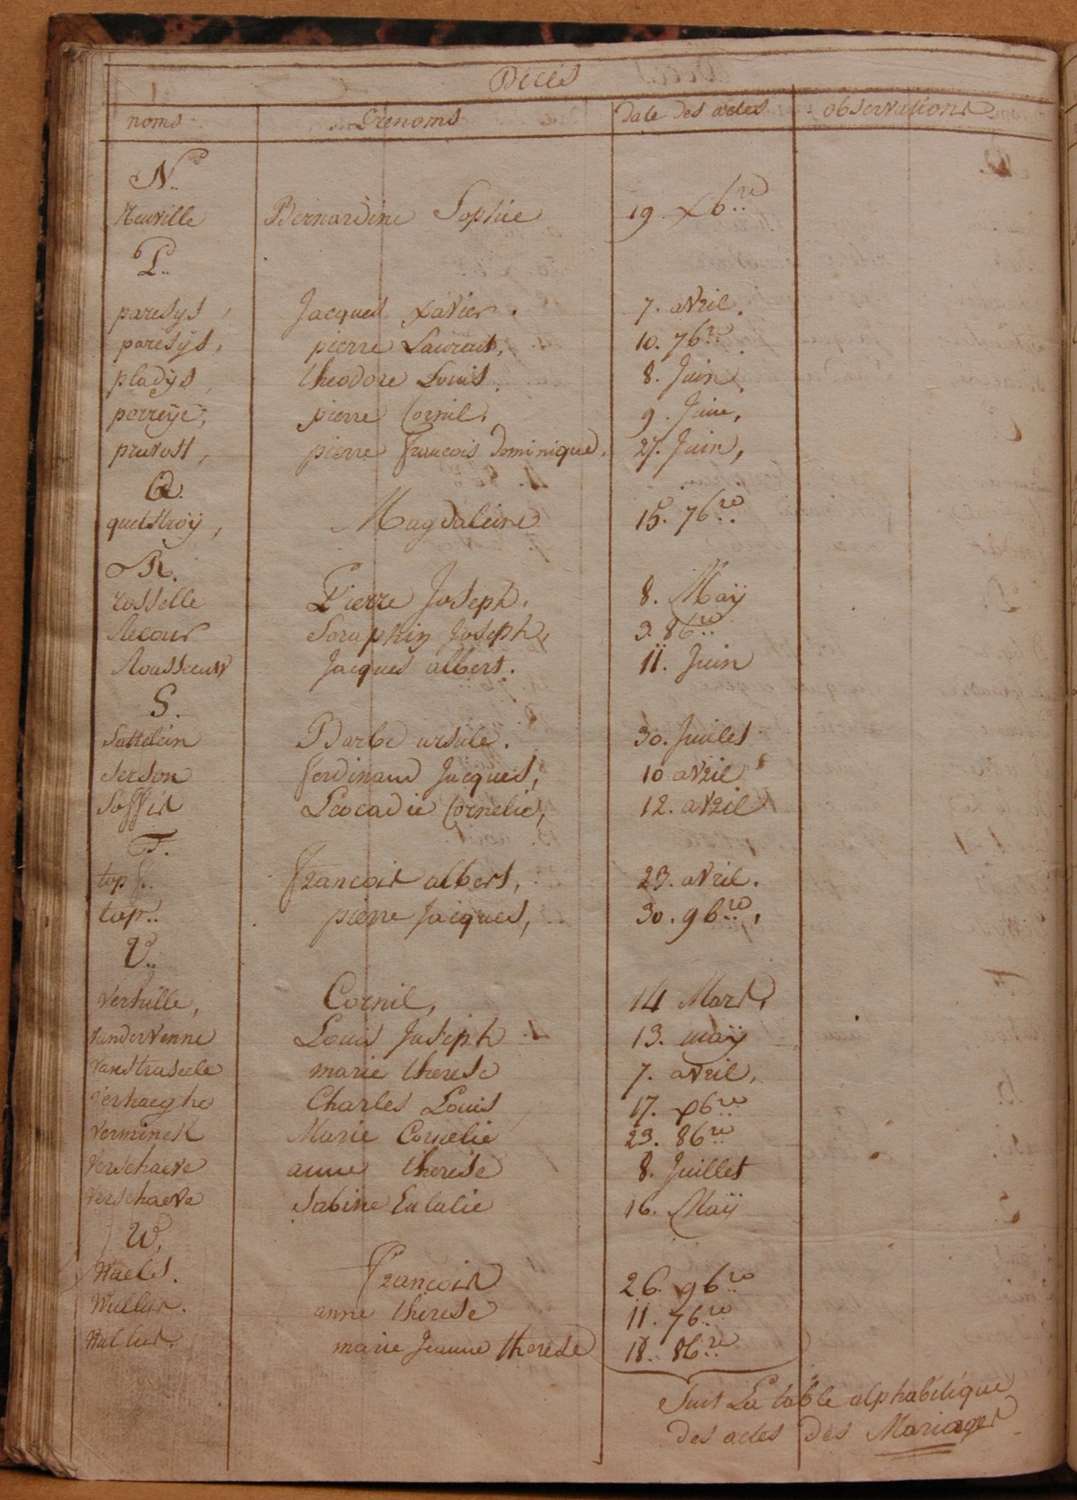 Décès
noms Prénoms Date des actes observations
N..
Neuville Bernardine Sophie 19. x6.re
P..
paresys, Jacques xavier. 7. avril.
paresys, pierre Laurent, 10. 76re
pladys, theodore Louis. 8. Juin
porreye, pierre Cornil, 9. Juin,
pruvost, pierre françois Dominique. 27. Juin,
Q.
quetstroÿ, Magdaleine 15. 76re
R.
rosselle Pierre Joseph. 8. Maÿ
Recour Seraphin Joseph, 3. 86re
Rousseuw Jacques albert. 11. Juin
S.
Sattelein Barbe ursule. 30. Juillet
Serson ferdinand Jacques, 10 avril
Soffis Leocadie Cornelie, 12. avril
T.
top.. françois albert, 23. avril.
top.. pierre Jacques, 30. 96re,
V..
Verhille, Cornil, 14 Mars,
Vandervenne Louis Joseph 13. maÿ
Vanstraseele marie therese 7. avril,
Verhaeghe Charles Louis 17. x6re
Verminck Marie Cornelie 23. 86re
Verschaeve anne therese 8. Juillet
Verschaeve Sabine Eulalie 16. Maÿ
W,
Waels. François 26. 96re
Wullus. anne therese 11. 76re
marie Jeanne therese 18. 86re
Suit La table alphabétique
des actes des Mariages